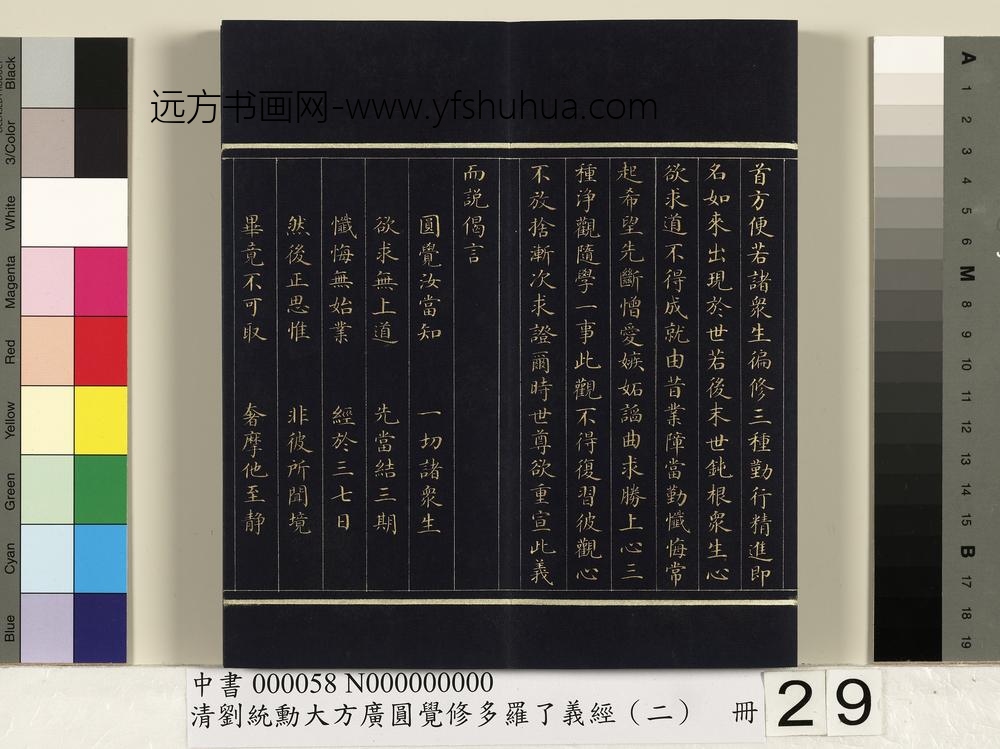 远方书画网-www.yfshuhua.com
首方便若諸衆生徧修三種勤行精進即
名如來出現於世若後末世鈍根衆生心
欲求道不得成就由昔業障當勤懺悔常
起希望先斷憎愛嫉妬諂曲求勝上心三
種淨觀隨學一事此觀不得復習彼觀心
不放捨漸次求證爾時世尊欲重宣此義
而說偈言
圓覺汝當知 一切諸衆生
欲求無上道 先當結三期
懺悔無始業 經於三七日
然後正思惟 非彼所聞境
畢竟不可取 奢摩他至静
Black
3/Color
White
Magenta
Red
Yellow
Green
Cyan
Blue
A
1
2
3
4
5
6
M
8
9
10
11
12
13
14
15
B
17
18
19
中書 000058 N000000000
清劉統勳大方廣圓覺修多羅了義經（二） 冊
29